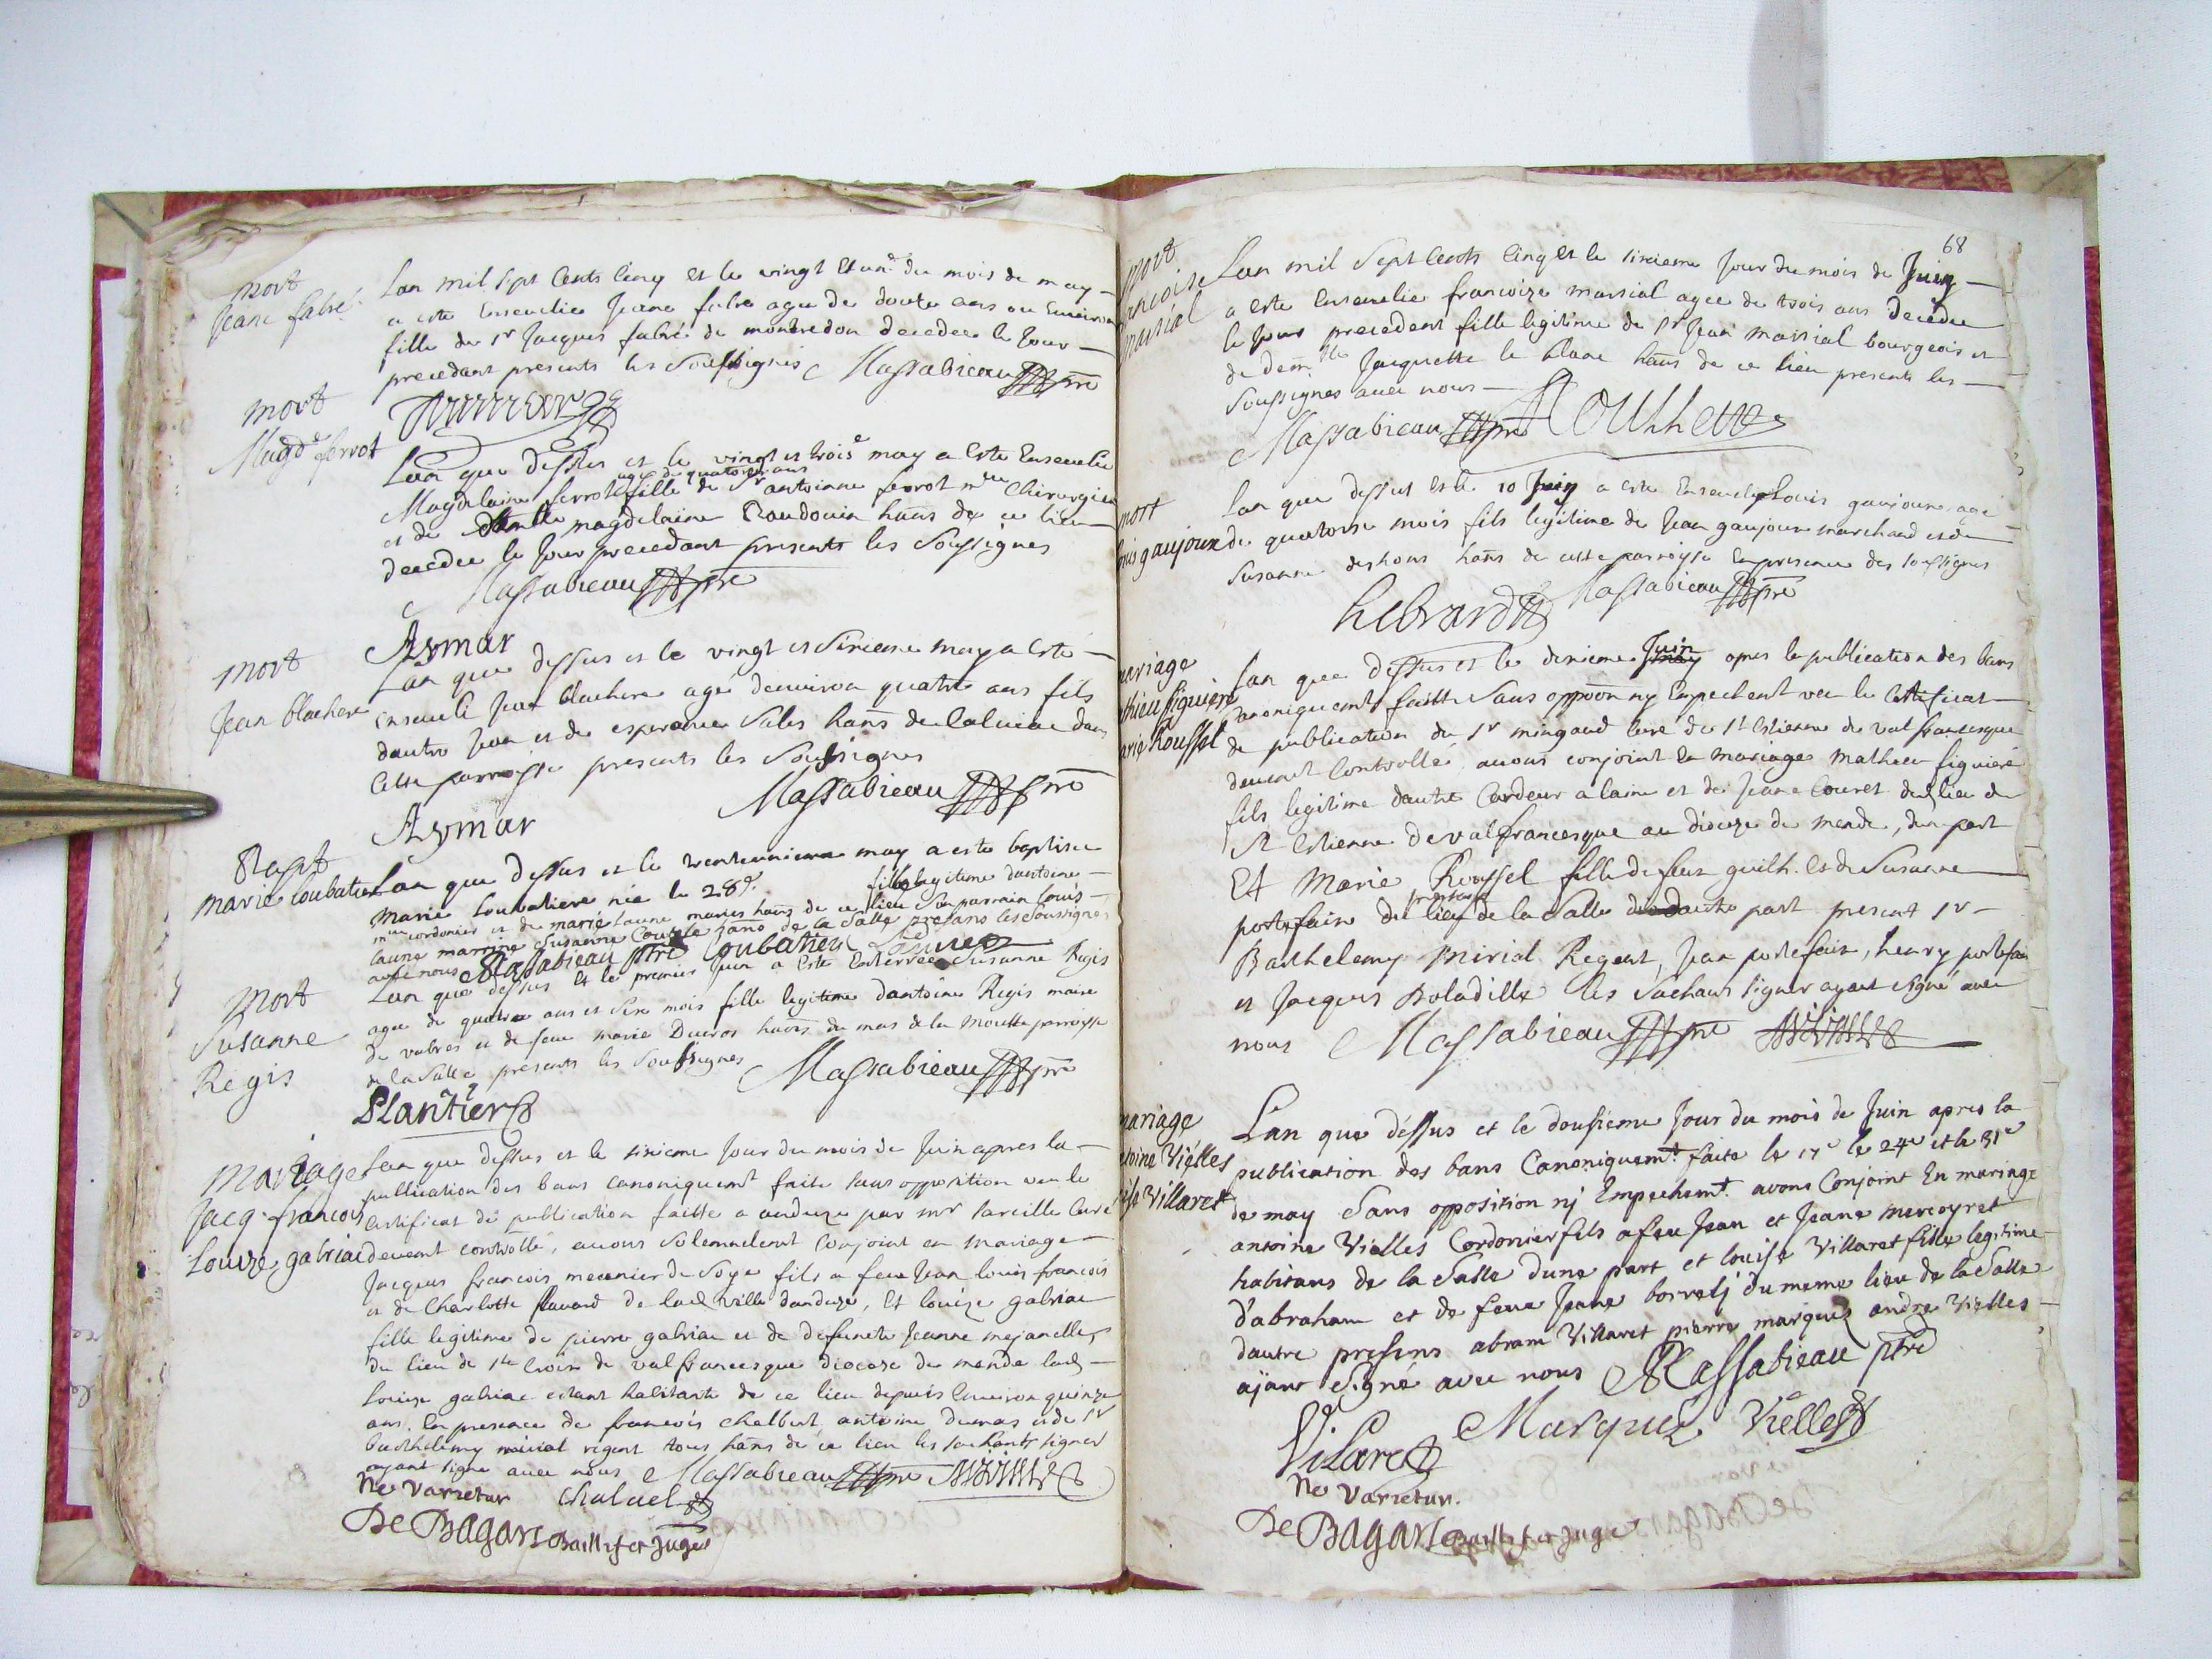 mort
Jeane fabre
Lan mil sept Cents Cinq et le vingt et un.e du mois de may
a este Ensevelie Jeane fabre agee de doutze ans ou Environ
fille de sr Jacques fabre de montredon decedee le Jour
precedant presents les soussignés Massabieau ptre
mort
Magd.e ferrot
Lan que dessus et le vingt et trois.e may a este Ensevelie
Magdelaine ferrot agee de quatorze ans fille de Sr antoinne ferrot m.tre Chirurgien
et de magdelaine Baudouin hans de ce lieu
decedee le Jour precedant presents les soussignes
Massabieau ptre
Aymar
mort
Jean blachere
Lan que dessus et le vingt et sixieme may a este
Enseveli Jean blachere age denviron quatre ans fils
dautre Jean et de esperance Sales hans de Calviac dans
Cette parroysse presents les soussignes
Massabieau ptre
Aymar
Bapt
marie loubatiere
Lan que dessus et le trenteunieme may a este baptisee
marie Loubatiere née le 28e. fille legitime dantoine
m.tre cordonier et de marie Laune maries hans de ce lieu Son parrain louis
laune marrine Susanne hans de la Salle presans les soussignes
avec nous Massabieau ptre Loubatieu Laune
mort
Susanne
Regis
Lan que dessus Et le premier Juin a este Enterrée Susanne Regis
agee de quatre ans et Six mois fille legitime dantoine Regis maire
de vabres et de feue marie Ducros hans du mas de la Moutte parroysse
de la Salle presents les soussignes Massabieau ptre
Plantier
Mariage
Jacq. francois
Louize gabriac
Lan que dessus et le sixieme Jour du mois de Juin apres la
publication des bans canoniquemt faite sans opposition veu le
Certificat de publication faitte a anduze par mr Curé
devemt controllé, avons solemnelemt Conjoint en mariage
Jacques francois de Soye fils a feu Jean louis francois
et de Charlotte de lad ville danduze, Et louize gabriac
fille legitime de pierre gabriac et de defuncte Jeanne mejanelle,
du lieu de ste Croix de valfrancesque dioceze de mende lad
louize gabriac estant habitante de ce lieu depuis Environ quinze
ans. En presence de francois Chalbert, antoine Dumas et de sr
barthelemy mirial regent tous hans de ce lieu les sachants signer
ayant signe avec nous Massabieau ptre
Ne varietur
De Bagars Baillif et Juge
68
mort
ancoise
marsial
Lan mil Sept Cents Cinq et le sixieme Jour du mois de Juin
a este Ensevelie francoize marsial agee de trois ans decedee
le Jour precedent fille legitime de sr Jean marsial bourgeois et
de dem.lle Jacquette le blanc hans de ce lieu presents les
soussignes avec nous
Massabieau ptre
mort
ouis gaujoux
Lan que dessus et le 10 Juin a este Enseveli Louis gaujoux age
de quatorse mois fils legitime de Jean gaujoux marchand et de
Susanne deshons hans de cette parroysse En presence des soussignes
hebrard Massabieau ptre
mariage
thieu figuiere
arie Roussel
Lan que dessus et le dixieme Juin apres la publication des bans
Canoniquemt faitte Sans oppoōn ny Empechemt veu le Certificat
de publication du sr mingaud Curé de St Estienne de valfrancesque
devemt Controllé, avons conjoint En mariage mathieu figuiere
fils legitime dautre Cardeur a laine et de Jeane Couret dud lieu de
St Estienne de valfrancesque au dioceze de mende, dun part
Et Marie Roussel fille de feu guilh. et de Susanne
portefaix du present lieu de la Salle dautre part present sr
Barthelemy Mirial Regent, Jean portefaix, henry portefaix
et Jacques Boladille les sachans signer ayant signé avec
nous Massabieau ptre
mariage
toine Viélles
ise Villaret
L'an que dessus et le dousieme Jour du mois de Juin apres la
publication des bans Canoniquemt. faite le 17e le 24e et le 31e
de may Sans opposition nj Empechemt. avons Conjoint En mariage
antoine Vielles Cordonier fils a feu Jean et Jeane mercoyret
habitans de la Salle dune part et louise Villaret fille legitime
d'abraham et de feue Jeane borrelj du meme lieu de la Salle
dautre presens abram Villaret pierre marques andre Vielles
ajant Signé avec nous Massabieau ptre
Vilaret Marques Vielles
Ne varietur.
De Bagars Baillif et Juge